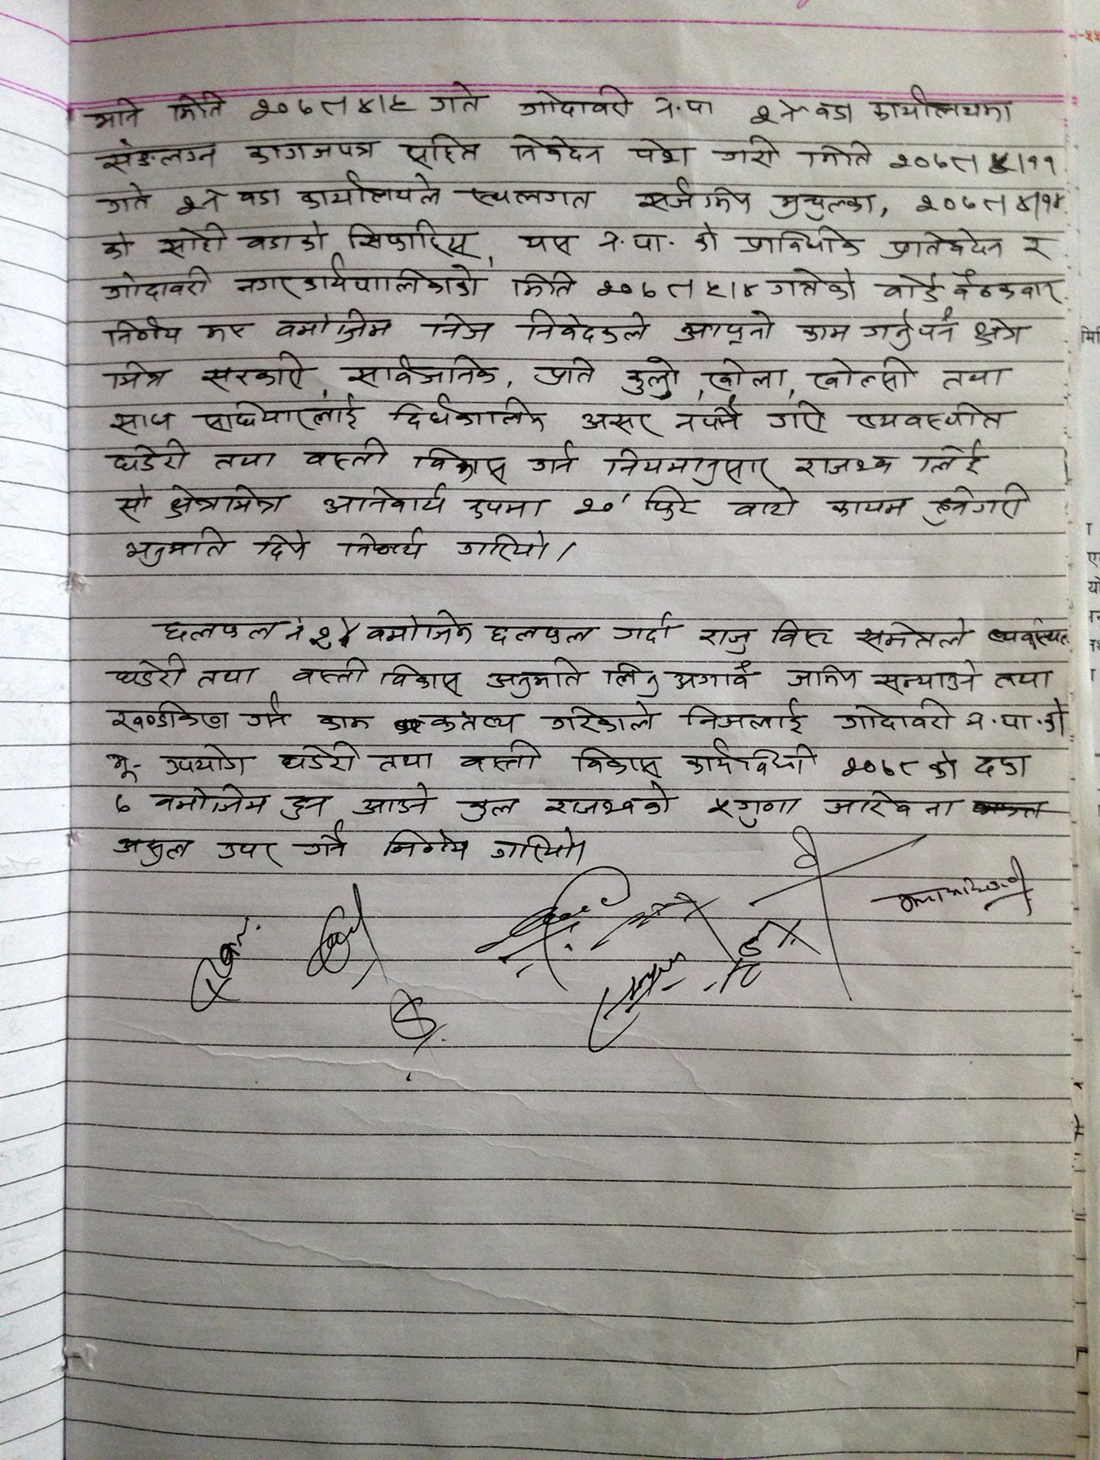 भनि मिति २०७८।४।९ गते गोदावरी न.पा २ नं वडा कार्यालयमा
संङलग्न कागजपत्र सहित निवेदन पेश गरी मिति २०७८।४।११
गते २ नं वडा कार्यालयले स्थलगत सर्जमिन मुचुल्का, २०७८।४।१४
को सोही वडाको सिफारिस, यस न.पा. को प्राविधिक प्रतिवेदन र
गोदावरी नगरकार्यपालिकाको मिति २०७८।५।४ गतेको वोर्ड बैठकबाट
निर्णय भए वमोजिम निज निवेदकले आफ्नो काम गर्नुपर्ने क्षेत्र
भित्र सरकारी, सार्वजनिक, प्रति कुलो, खोला, खोल्सी तथा
साध साधियारलाई दिर्घकालिन असर नपर्ने गरी व्यवस्थीत
घडेरी तथा वस्ती विकास गर्न नियमानुसार राजश्व लिई
सो क्षेत्रभित्र अनिवार्य रुपमा २०' फिट वाटो कायम हुनेगरी
अनुमति दिने निर्णय गरियो।
छलफल नं २४ वमोजिम छलफल गर्दा राजु विष्ट समेतले व्यवस्थित
घडेरी तथा वस्ती विकास अनुमति लिनु अगावै जमिन सम्याउने तथा
खण्डिकरण गर्ने काम कतव्य गरेकाले निजलाई गोदावरी न.पा.को
भू- उपयोग घडेरी तथा वस्ती विकास कार्यविधी २०७८ को दफा
७ वमोजिम हुन आउने कुल राजश्वको ५ गुणा जरिवाना
असुल उपर गर्ने निर्णय गरियो।